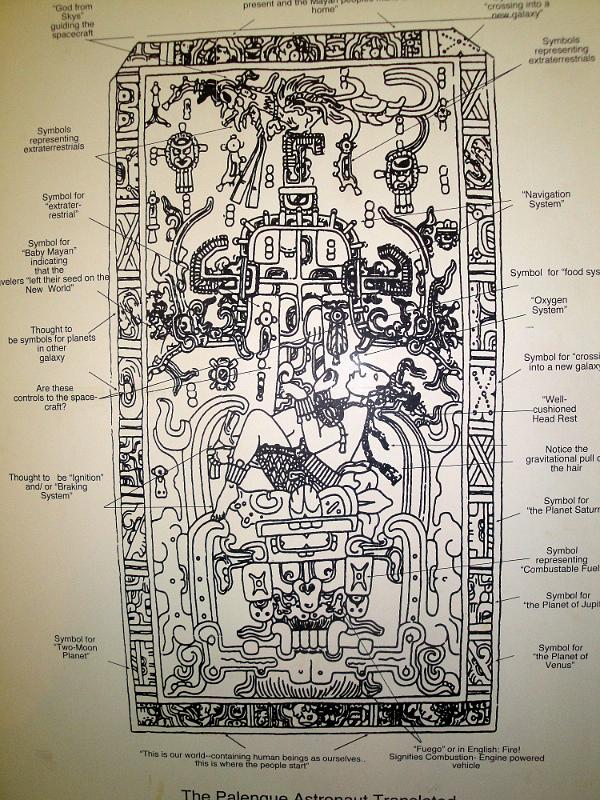 "God from
Skys"
guiding the
spacecraft
present and the Mayan peoples
home"
"crossing into a
new galaxy"
Symbols
representing
extraterrestrials
Symbols
representing
extraterrestrials
Symbol for
"extrater-
restrial"
"Navigation
System"
Symbol for
"Baby Mayan"
indicating
that the
velers "left their seed on the
New World"
Symbol for "food sys
"Oxygen
System"
Thought to
be symbols for planets
in other
galaxy
Symbol for "crossi
into a new galaxy
Are these
controls to the space-
craft?
"Well-
cushioned
Head Rest
Notice the
gravitational pull o
the hair
Thought to be "Ignition"
and/ or "Braking
System"
Symbol for
"the Planet Saturn
Symbol
representing
"Combustable Fuel
Symbol for
"the Planet of Jupit
Symbol for
"Two-Moon
Planet"
Symbol for
"the Planet of
Venus"
"This is our world--containing human beings as ourselves..
this is where the people start"
"Fuego" or in English: Fire!
Signifies Combustion- Engine powered
vehicle
The Palenque Astronaut Translated